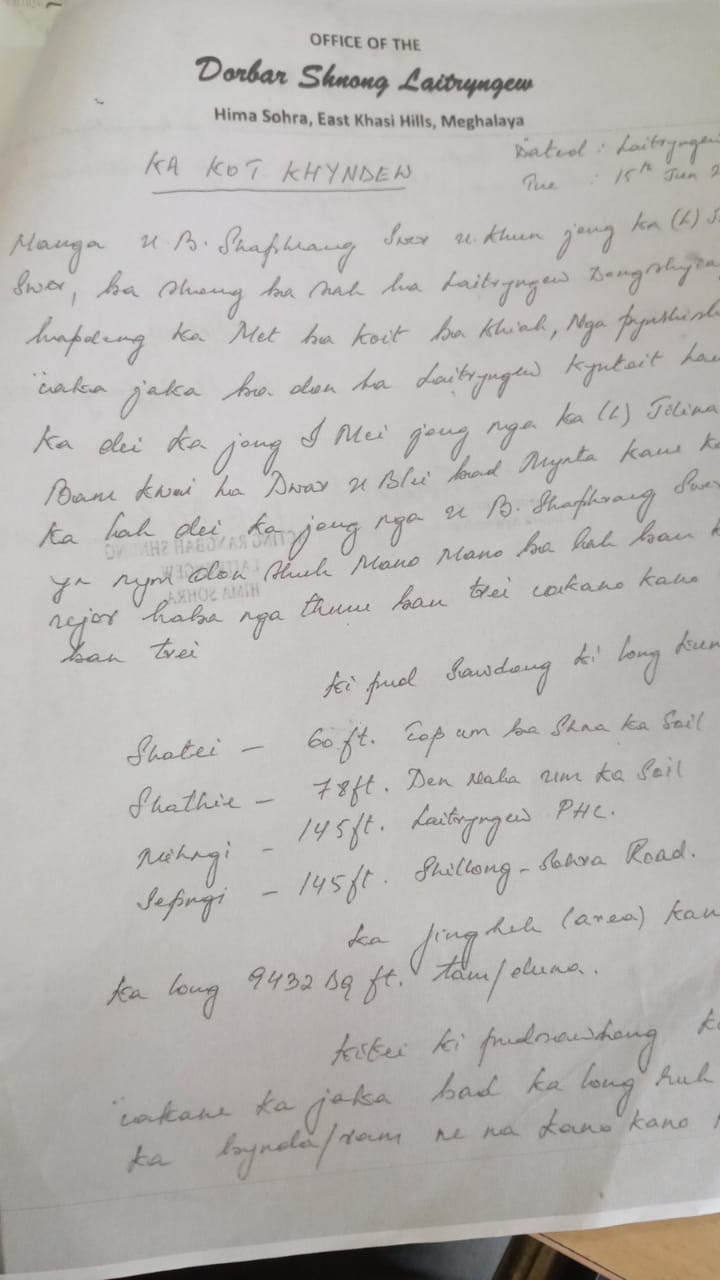 OFFICE OF THE
Dorbar Shnong Laitryngew
Hima Sohra, East Khasi Hills, Meghalaya
Dated : Laitryngew
KA KOT KHYNDEW
Tue : 15th Jun 2
Manga u B. Shaphrang Swer u khun jong ka (L)
Swer, ba shong ba sah ha Laitryngew
hapdeng ka Met ba koit ba khiah, Nga pynshisha
ïaka jaka ba don ha Laitryngew Kyntoit
ka dei ka jong I Mei jong nga ka (L) Jilina
Bam kwai ha Dwar U Blei bad Mynta kane
ka hah dei ka jong nga u B. Shaphrang Swer
ym don shuh Mano Mano ba hah ban
haba nga thmu ban trei ïakano kano
ban trei
ki pud sawdong ki long kum
Shatei - 60 ft. Top um ba Shna ka Soil
Shathie - 78 ft. Den um ka Soil
Mihngi - 145 ft. Laitryngew PHC.
Sepngi - 145 ft. Shillong - Sohra Road.
ka Jingheh (area) kane
ka long 9432 Sq ft. tam/duna.
kitei ki pud
ïakane ka jaka bad ka long ruh
ka bynda/ram ne na kano kano
RANGBAH SHNONG
HIMA SOHRA